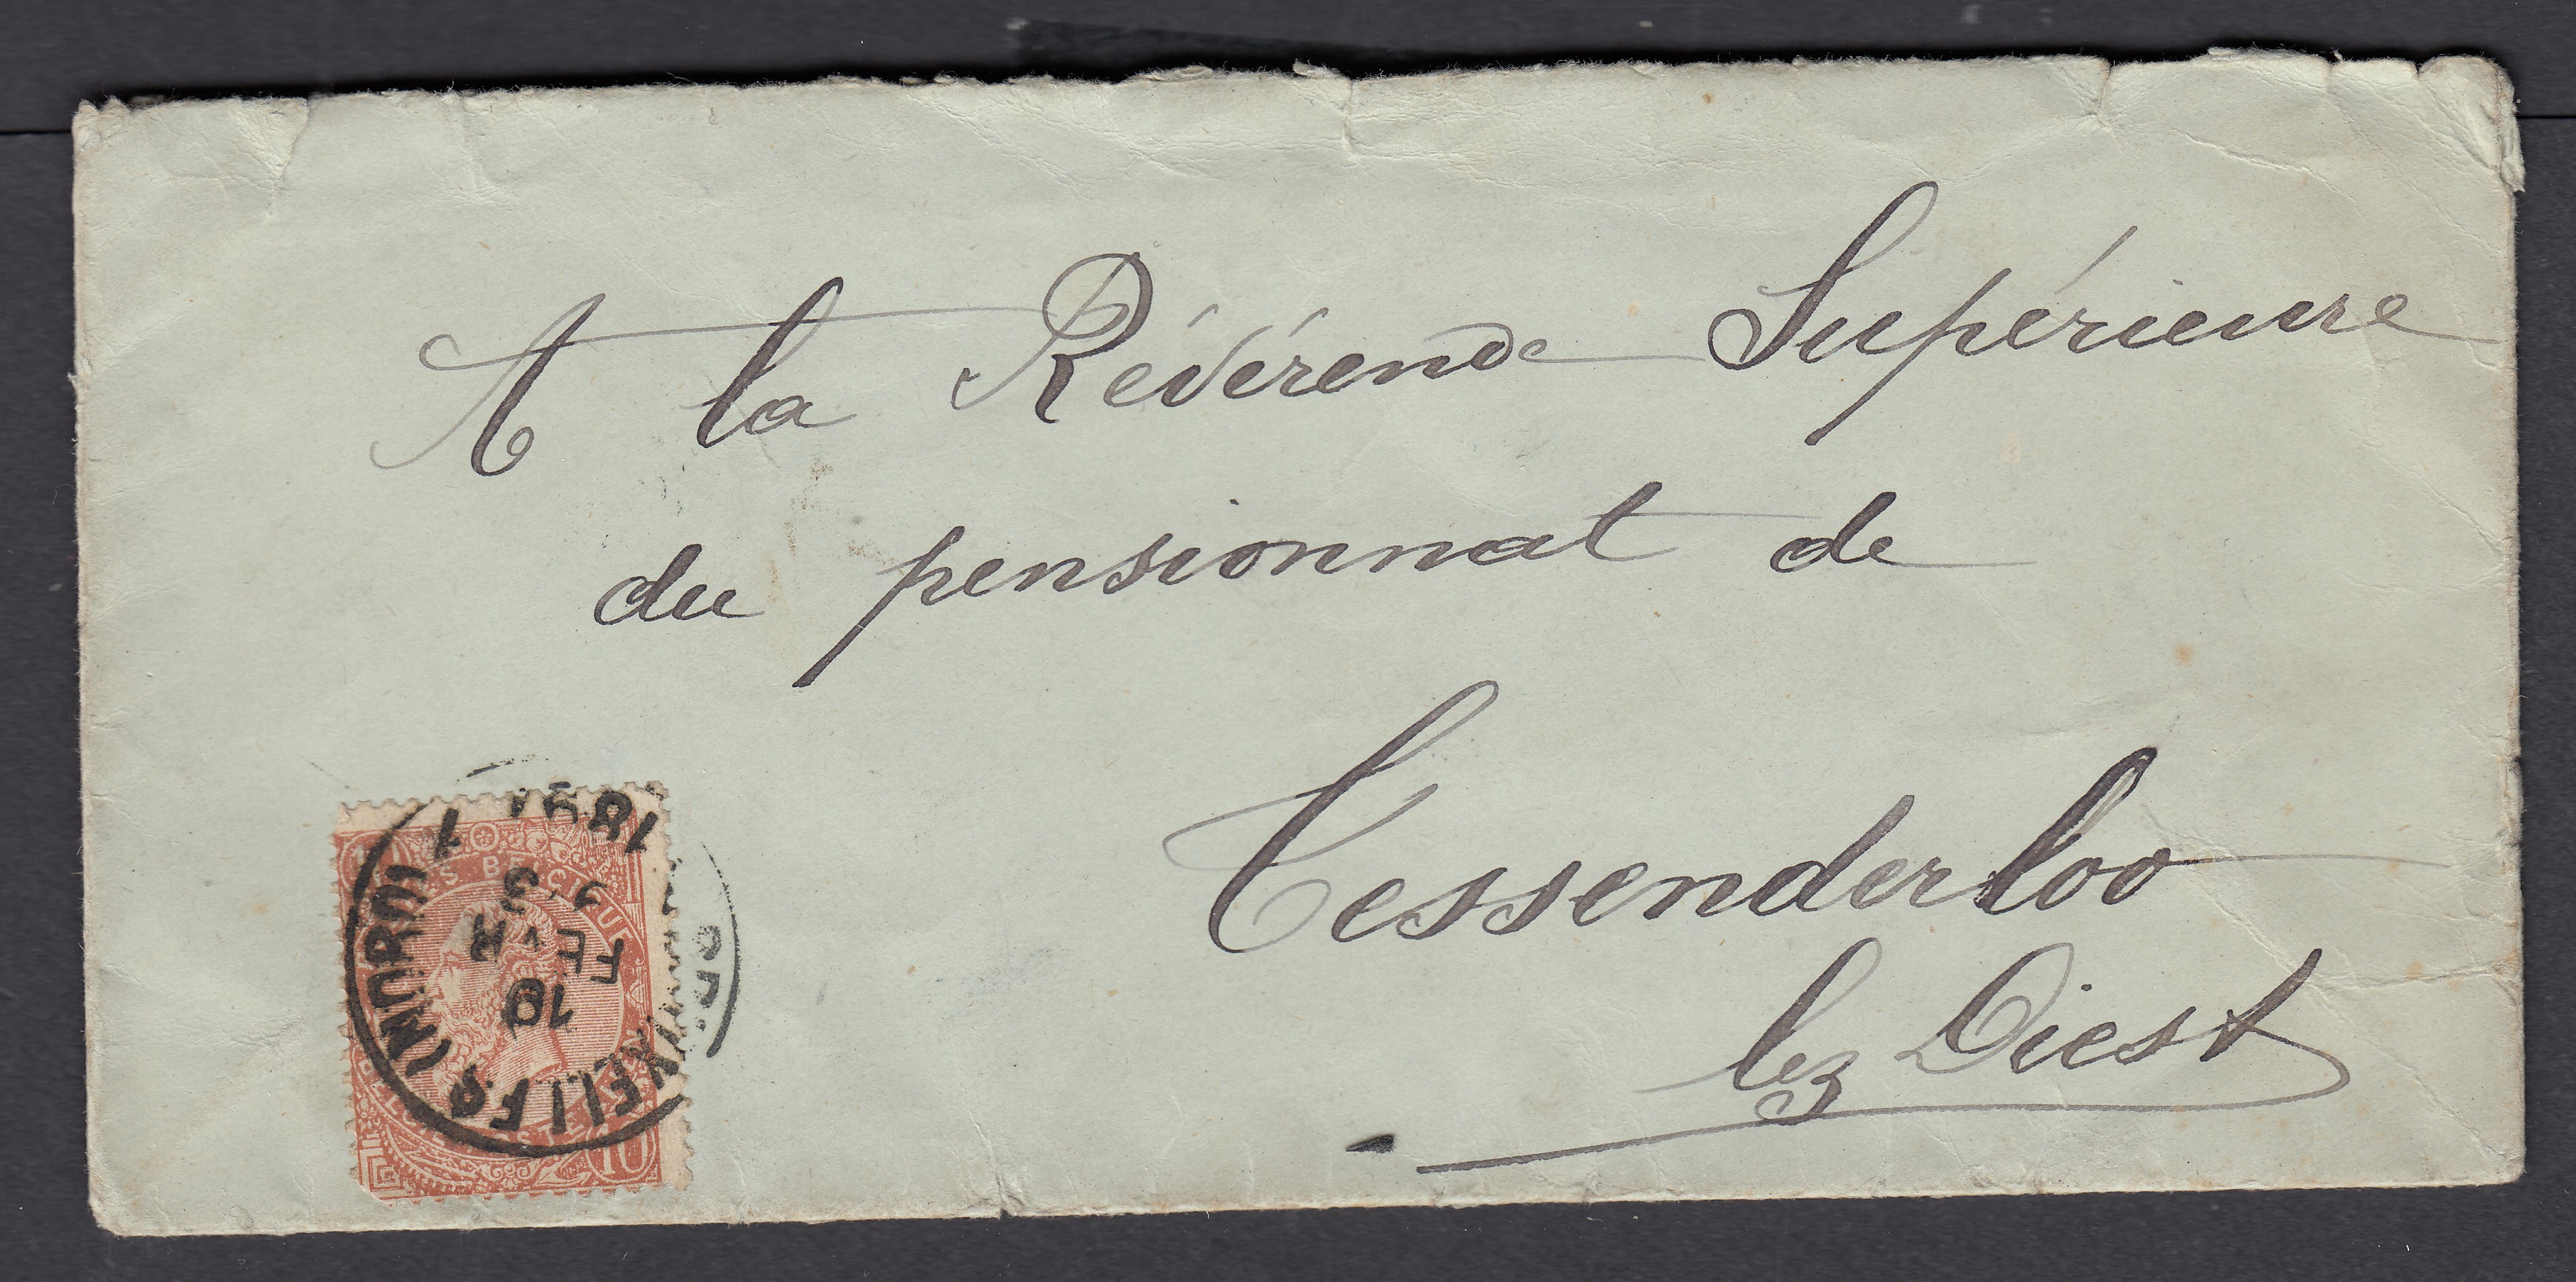 A la Révérende Supérieure
du pensionnat de
Tessenderloo
lez Diest
BRUXELLES (NORD) 1
19
FEVR
9-3
10